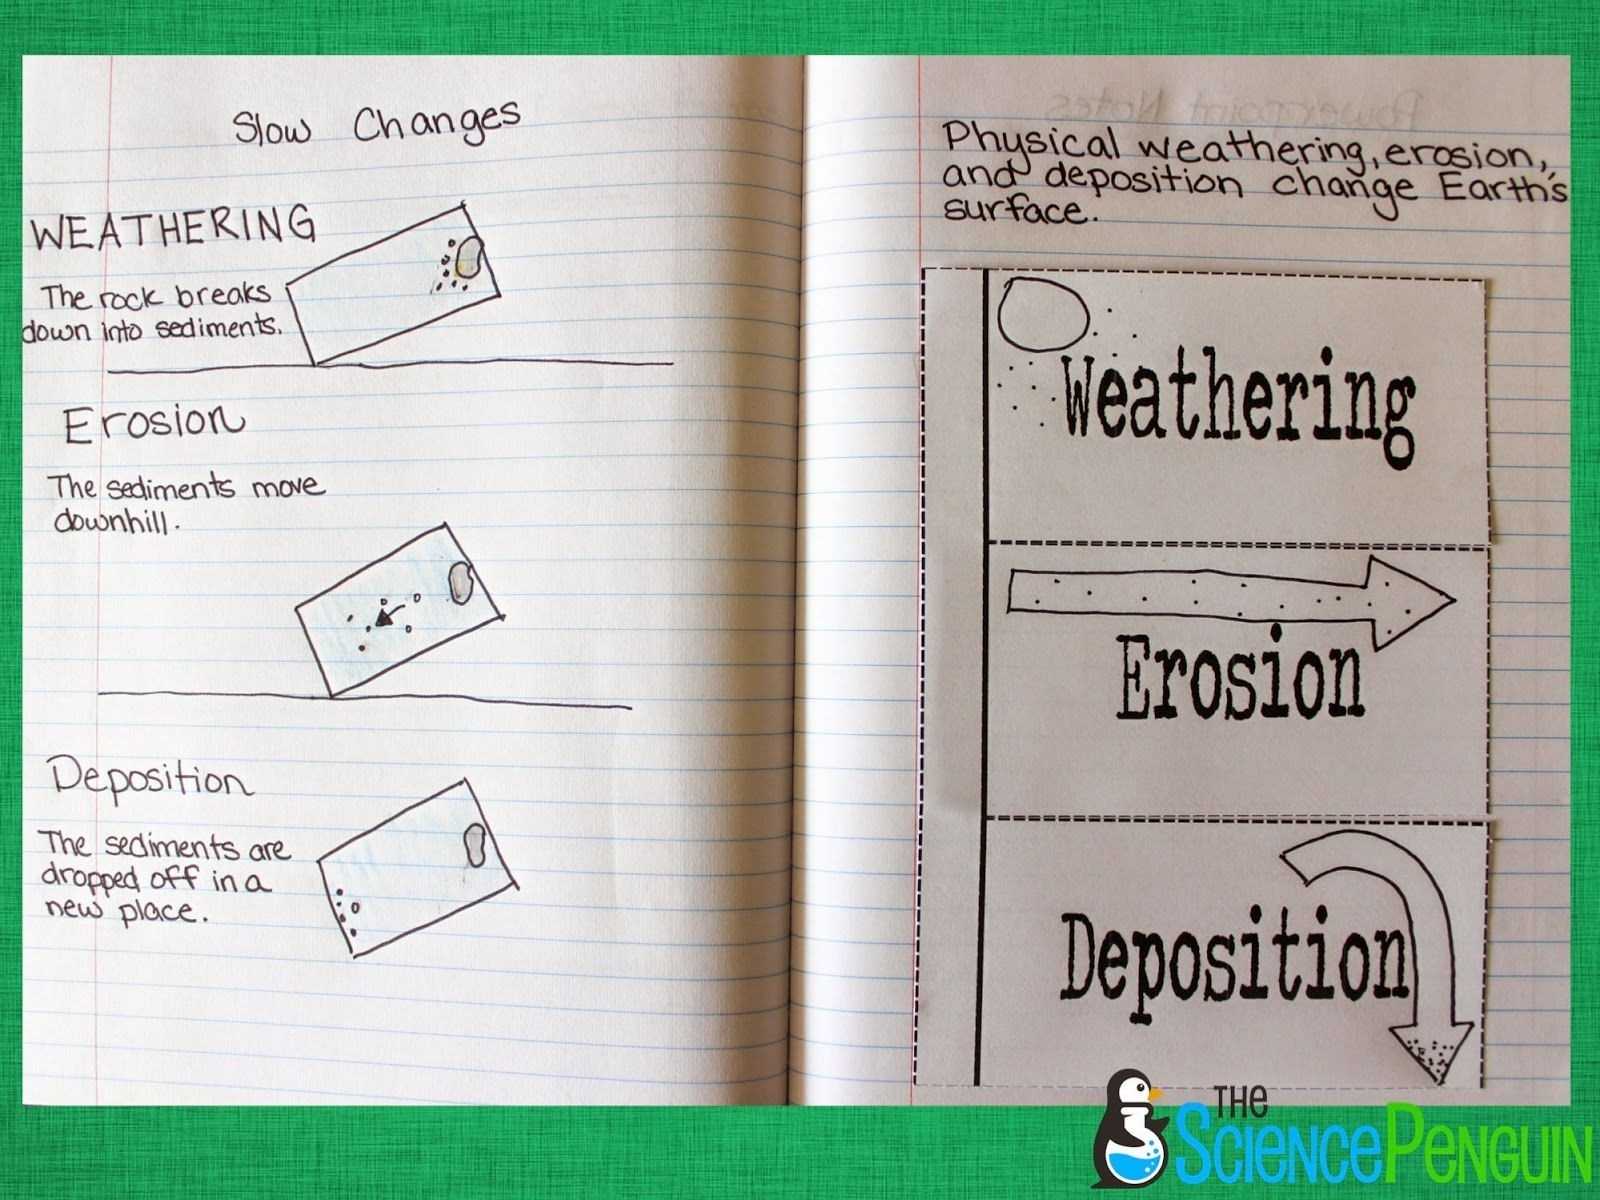 Slow Changes
WEATHERING
The rock breaks
down into sediments.
Erosion
The sediments move
downhill.
Deposition
The sediments are
dropped off in a
new place.
Powerpoint Notes
Physical weathering, erosion,
and deposition change Earth's
surface.
Weathering
Erosion
Deposition
THE
SCIENCEPENGUIN